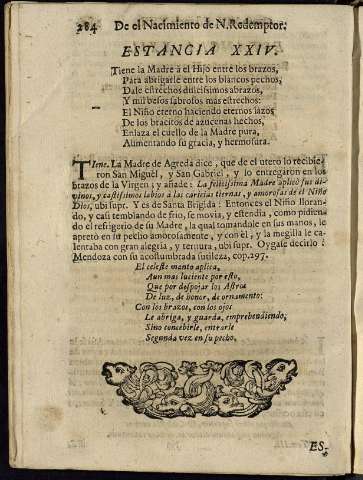 284 De el Nacimiento de N. Redemptor.
ESTANCIA XXIV.
Tiene la Madre à el Hijo entre los brazos,
Para abrigarle entre los blancos pechos,
Dale estrechos dulcissimos abrazos,
Y mil besos sabrosos más estrechos:
El Niño eterno haciendo eternos lazos
De los bracitos de azucenas hechos,
Enlaza el cuello de la Madre pura,
Aumentando su gracia, y hermosura.
Tiene. La Madre de Agreda dice, que de el utero lo recibie-
ron San Miguèl, y San Gabrièl, y lo entregaron en los
brazos de la Virgen; y añade: La felicissima Madre aplicò sus di-
vinos, y castissimos labios à las caricias tiernas, y amorosas de el Niño
Dios, ubi supr. Y es de Santa Brigida: Entonces el Niño lloran-
do, y casi temblando de frio, se movia, y estendia, como pidien-
do el refrigerio de su Madre, la qual tomandole en sus manos, le
apretò en su pecho amorosamente, y con el, y la megilla le ca-
lentaba con gran alegria, y ternura, ubi supr. Oygase decirlo à
Mendoza con su acostumbrada sutileza, cop. 297.
El celeste manto aplica,
Aun mas luciente por esto,
Que por despojar los Astros
De luz, de honor, de ornamento:
Con los brazos, con los ojos
Le abriga, y guarda, emprehendiendo,
Sino concebirle, entrarle
Segunda vez en su pecho.
ES-